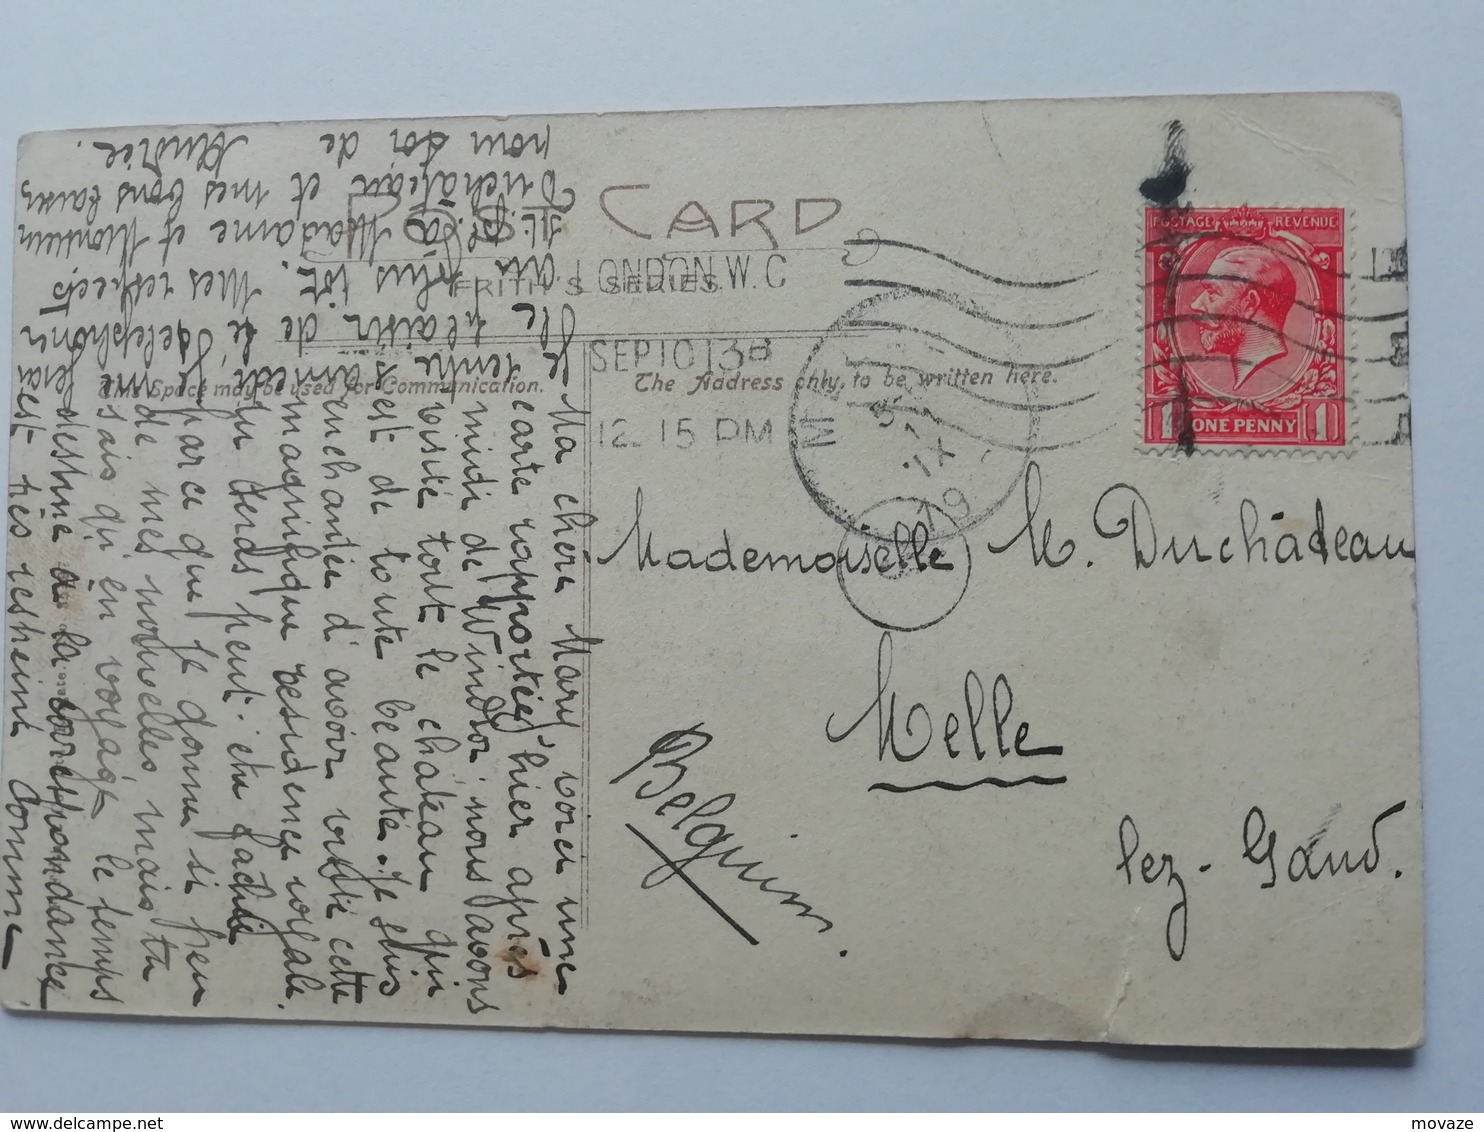 POST CARD
FRITH'S SERIES.
This Space may be used for Communication.
The Address only, to be written here.
LONDON.W.C
SEP 10 13
12. 15 PM
POSTAGE REVENUE
1 ONE PENNY 1
Mademoiselle M. Duchâteau
Melle
lez-Gand.
Belgium.
Ma chère Mary, voici une
carte rapportée, hier après
midi de Windsor nous avons
visité tout le château qui
est de toute beauté. Je suis
enchantée d'avoir visité cette
magnifique résidence royale.
Tu perds peut-etre
parce que je donne si peu
de mes nouvelles mais tu
sais qu'en voyage le temps
destiné à la correspondance
est très restreint comme
Je te
téléphonerai
samedi
le plaisir de
plus tôt. Mes respects
à Madame et Monsieur
Duchâteau et mes bons baisers
pour toi de
Andrée.
movaze